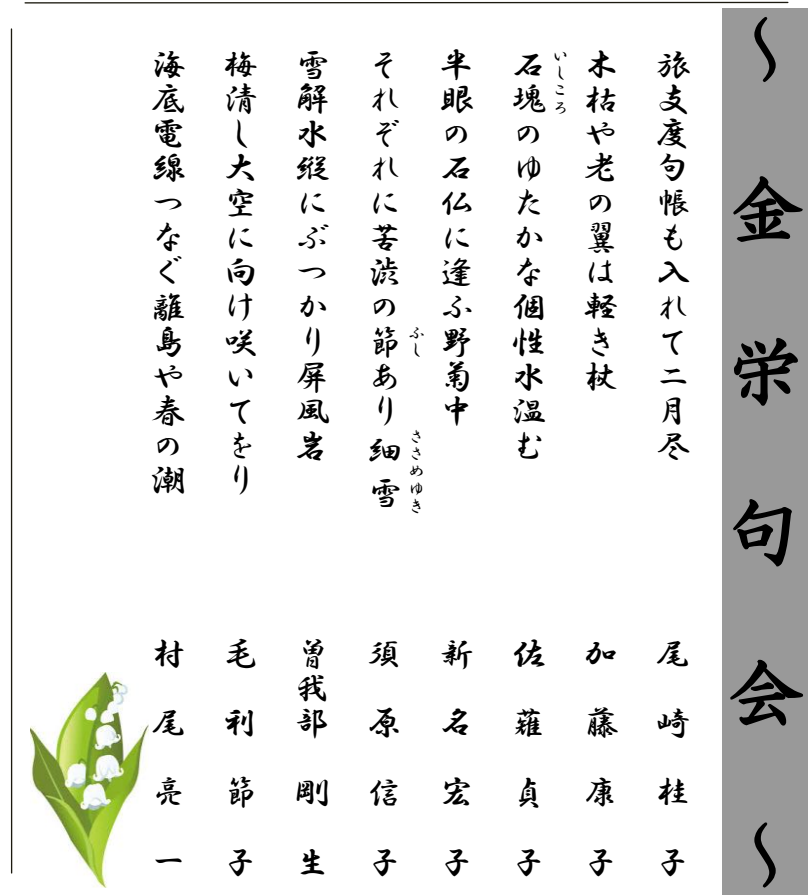 〜金栄句会〜
旅支度句帳も入れて二月尽
尾崎桂子
木枯や老の翼は軽き杖
加藤康子
石塊のゆたかな個性水温む
いしころ
佐薙貞子
半眼の石仏に逢ふ野菊中
新名宏子
それぞれに苦渋の節あり細雪
ふし
ささめゆき
須原信子
雪解水縦にぶつかり屏風岩
曽我部剛生
梅清し大空に向け咲いてをり
毛利節子
海底電線つなぐ離島や春の潮
村尾亮一